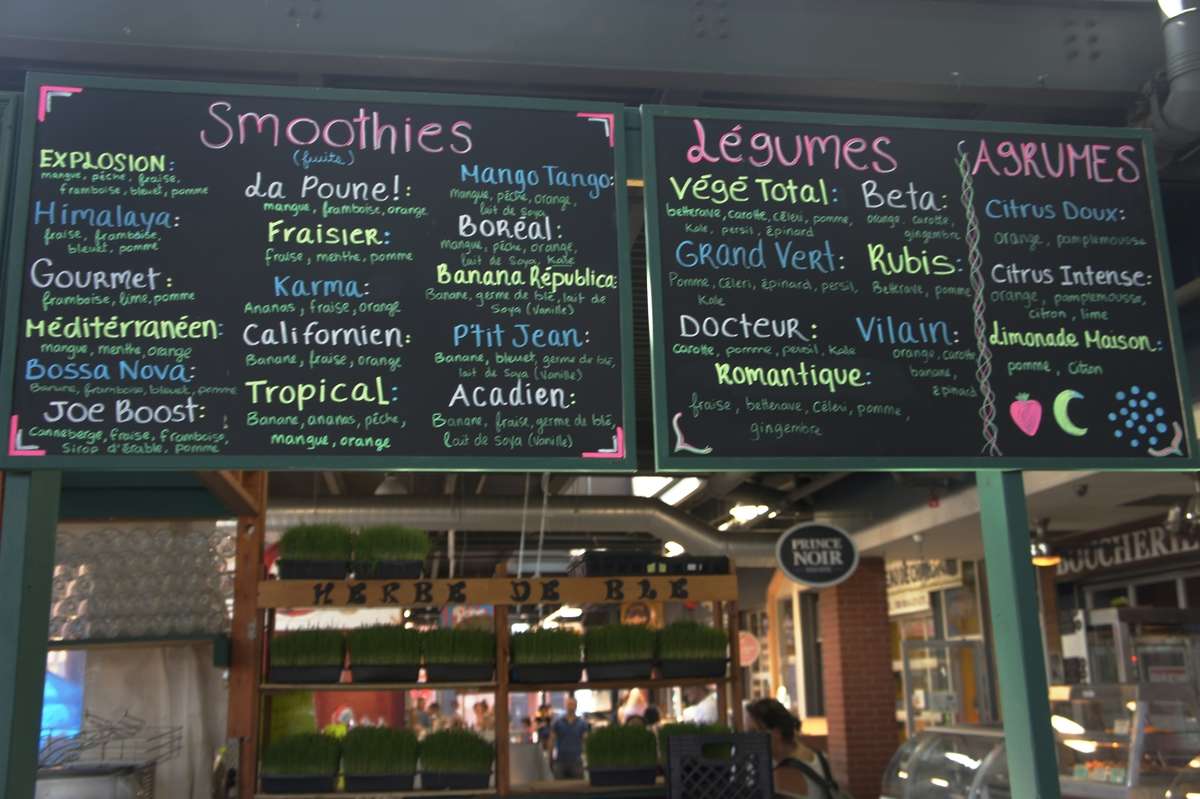 Smoothies
(fruits)
EXPLOSION:
mangue, pêche, fraise,
framboise, bleuet, pomme
Himalaya:
fraise, framboise,
bleuet, pomme
Gourmet:
framboise, lime, pomme
Méditérranéen:
mangue, menthe, orange
Bossa Nova:
Banane, framboise, bleuet, pomme
Joe Boost:
Canneberge, fraise, framboise,
Sirop d'érable, pomme
La Poune!:
mangue, framboise, orange
Fraisier:
fraise, menthe, pomme
Karma:
Ananas, fraise, orange
Californien:
Banane, fraise, orange
Tropical:
Banane, ananas, pêche,
mangue, orange
Mango Tango:
mangue, pêche, orange,
lait de Soya
Boréal:
mangue, pêche, orange,
lait de Soya, Kale
Banana Républica:
Banane, germe de blé, lait de
Soya (Vanille)
P'tit Jean:
Banane, bleuet, germe de blé,
lait de Soya (Vanille)
Acadien:
Banane, fraise, germe de blé,
lait de Soya (Vanille)
Légumes
Végé Total:
betterave, carotte, céleri, pomme,
Kale, persil, épinard
Grand Vert:
Pomme, Céleri, épinard, persil,
Kale
Docteur:
carotte, pomme, persil, Kale
Romantique:
fraise, betterave, Céleri, pomme,
gingembre
Beta:
orange, carotte,
gingembre
Rubis:
Betterave, pomme
Vilain:
orange, carotte
banane,
épinard
AGRUMES
Citrus Doux:
orange, pamplemousse
Citrus Intense:
orange, pamplemousse,
citron, lime
Limonade Maison:
pomme, Citron
HERBE DE BLE
PRINCE
NOIR
BOUCHERIE